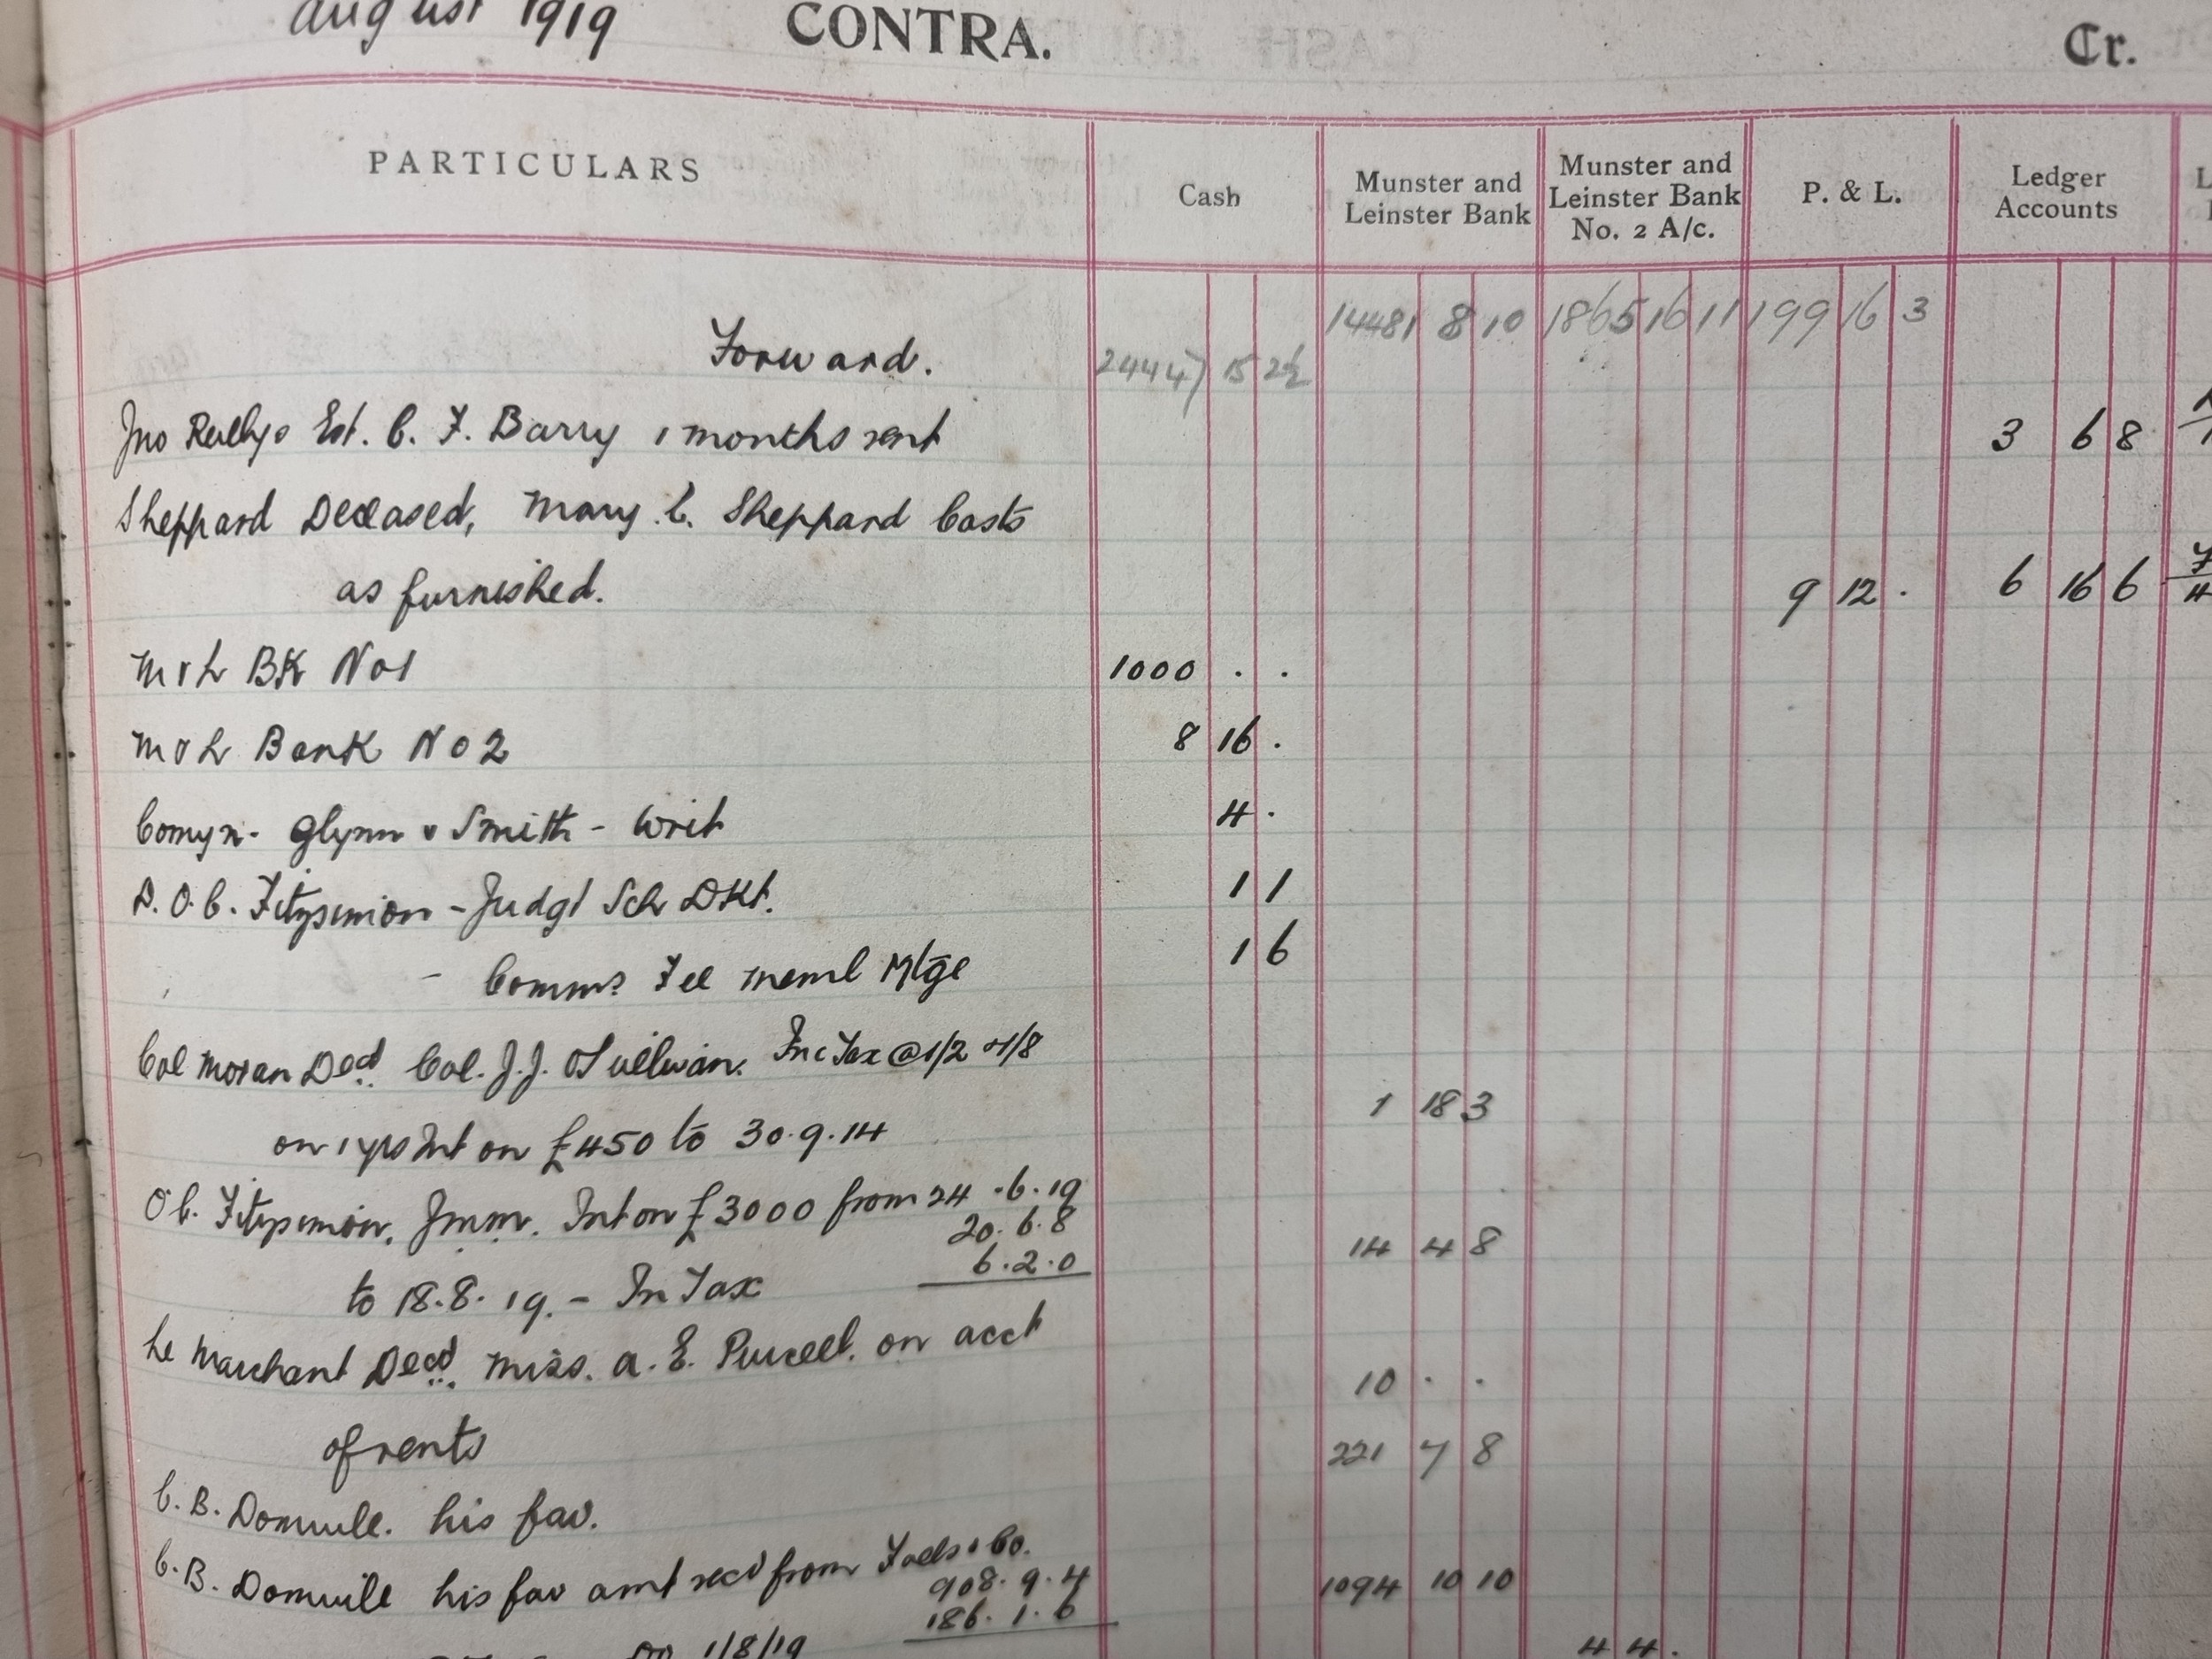 August 1919 CONTRA. Cr.
PARTICULARS Cash Munster and Leinster Bank Munster and Leinster Bank No. 2 A/c. P. & L. Ledger Accounts
Forward. 24447 15 2½ 14481 8 10 1865 16 11 199 16 3
Jno Reillys Est. C. F. Barry 1 months rent 3 6 8
Sheppard Deceased, Mary C. Sheppard Costs
as furnished. 9 12 . 6 16 6
M & L BK No 1 1000 . .
M & L Bank No 2 8 16 .
Comyn - Glynn v Smith - Writ 4 .
D. O. C. Fitzsimon - Judgt Sch DKt. 1 1
- Commrs Fee meml Mtge 1 6
Col Moran Decd. Col. J. J. O'Sullivan. Inc Tax @ 1/2 & 1/8
on 1 yrs Int on £450 to 30.9.14 1 18 3
O C. Fitzsimon, Jmm. Int on £3000 from 24.6.19
20.6.8
6.2.0
to 18.8.19. - In Tax 14 4 8
Le Marchant Decd. Miss. A. E. Purcell. on acct
of rents 10 . .
C. B. Domvile. his fav. 221 7 8
C. B. Domvile his fav amt recd from & Co.
908.9.4
186.1.6
1094 10 10
Do 1/8/19 4 4 .